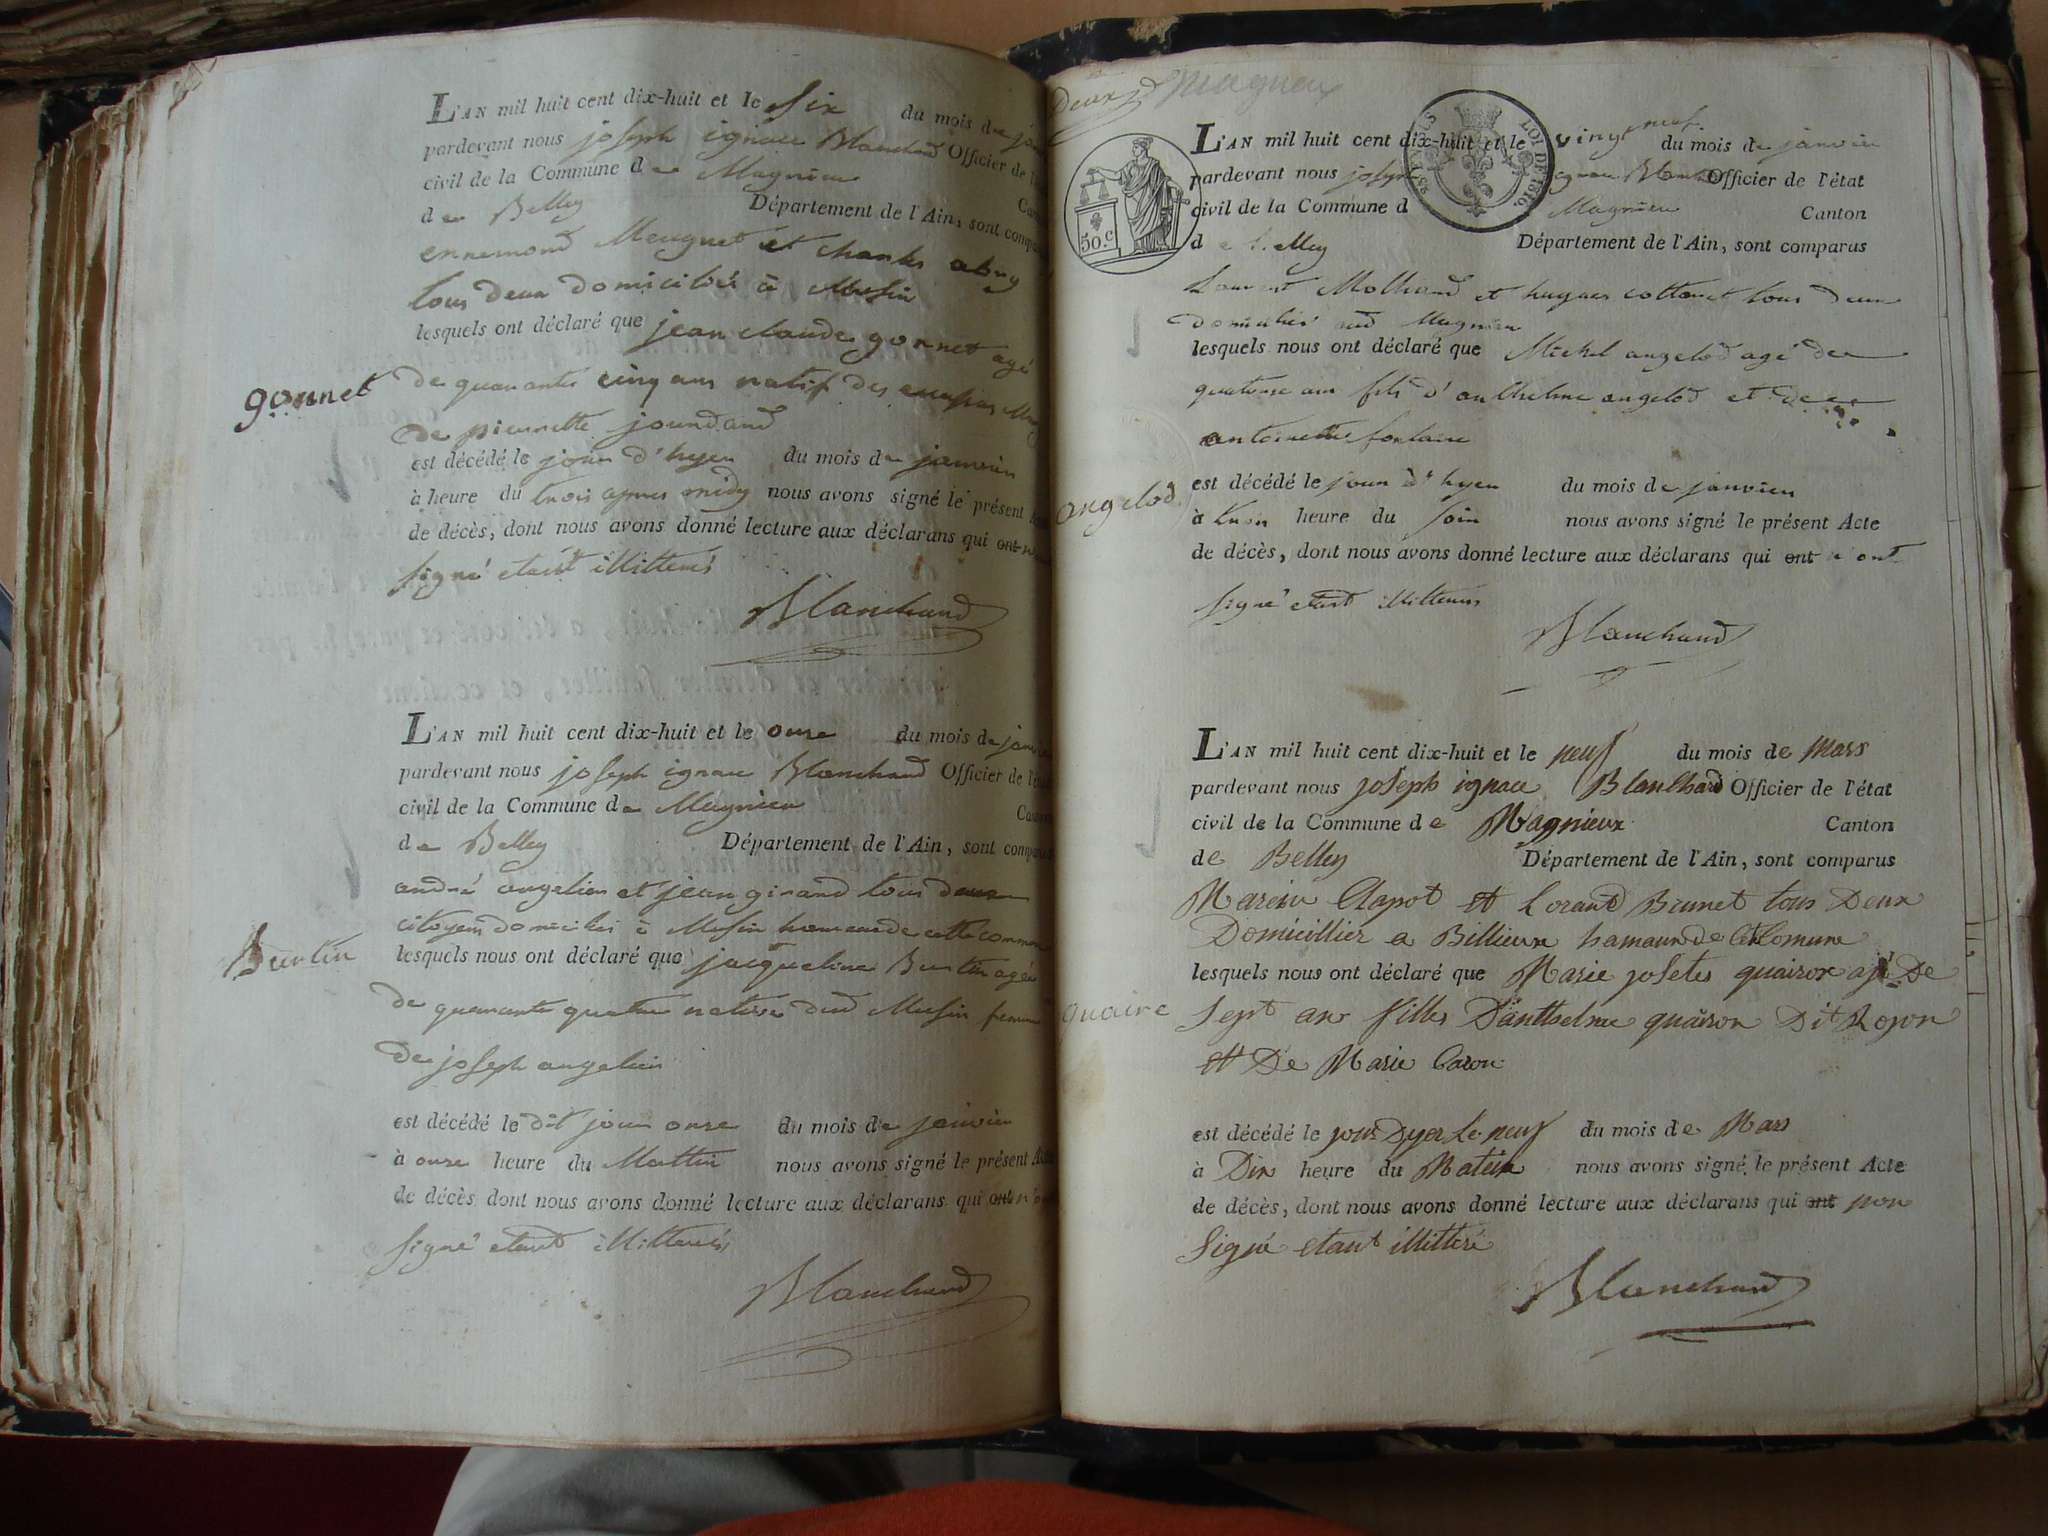 L'AN mil huit cent dix-huit et le six du mois de
pardevant nous joseph ignace Blanchard Officier de
civil de la Commune de Magnieu
de Belley Département de l'Ain, sont
ennemond Meugnet et charles
tous deux domiciliés à Musin
lesquels ont déclaré que jean claude gonnet agé
gonnet
de quarante cinq ans natif des
de pierrette jourdand
est décédé le jour d'hyer du mois de janvier
à heure du trois apres midy nous avons signé le présent
de décès, dont nous avons donné lecture aux déclarans qui ont
signé etant illitterés
Blanchard
L'AN mil huit cent dix-huit et le onze du mois de
pardevant nous joseph ignace Blanchard Officier de
civil de la Commune de Magnieu
de Belley Département de l'Ain, sont
andré angelier et jean girand tous deux
citoyens domiciliés à Musin hameau de cette
Burtin
lesquels nous ont déclaré que jacqueline Burtin agée
de quarante quatre native dud Musin femme
de joseph angelier
est décédé le dit jour onze du mois de janvier
à onze heure du Mattin nous avons signé le présent
de décès dont nous avons donné lecture aux déclarans qui ont
signé etant illitterés
Blanchard
Deux Magnieu
50.c
LOI DE 1816.
L'AN mil huit cent dix-huit et le vingt neuf du mois de janvier
pardevant nous joseph ignace Officier de l'état
civil de la Commune d Magnieu Canton
de Belley Département de l'Ain, sont comparus
Laurent Molhard et hugues cottonet tous deux
domiciliés aud Magnieu
lesquels nous ont déclaré que Michel angelod agé de
quatorze ans fils d'anthelme angelod et de
antoinette fontaine
angelod
est décédé le jour d'hyer du mois de janvier
à trois heure du soir nous avons signé le présent Acte
de décès, dont nous avons donné lecture aux déclarans qui ont n'ont
signé etant illitterés
Blanchard
L'AN mil huit cent dix-huit et le neuf du mois de Mars
pardevant nous joseph ignace Blanchard Officier de l'état
civil de la Commune de Magnieux Canton
de Belley Département de l'Ain, sont comparus
Clapot et Lorand Brunet tous Deux
Domicillier a Billieux hamaux de Cet Comune
lesquels nous ont déclaré que Marie josetes De
quaire
Sept ans filles D'anthelme quairon Dit Rojon
et De Marie Caron
est décédé le jour Dyer Le neuf du mois de Mars
à Dix heure du Matin nous avons signé le présent Acte
de décès, dont nous avons donné lecture aux déclarans qui ont non
Signé etant illitteré
Blanchard